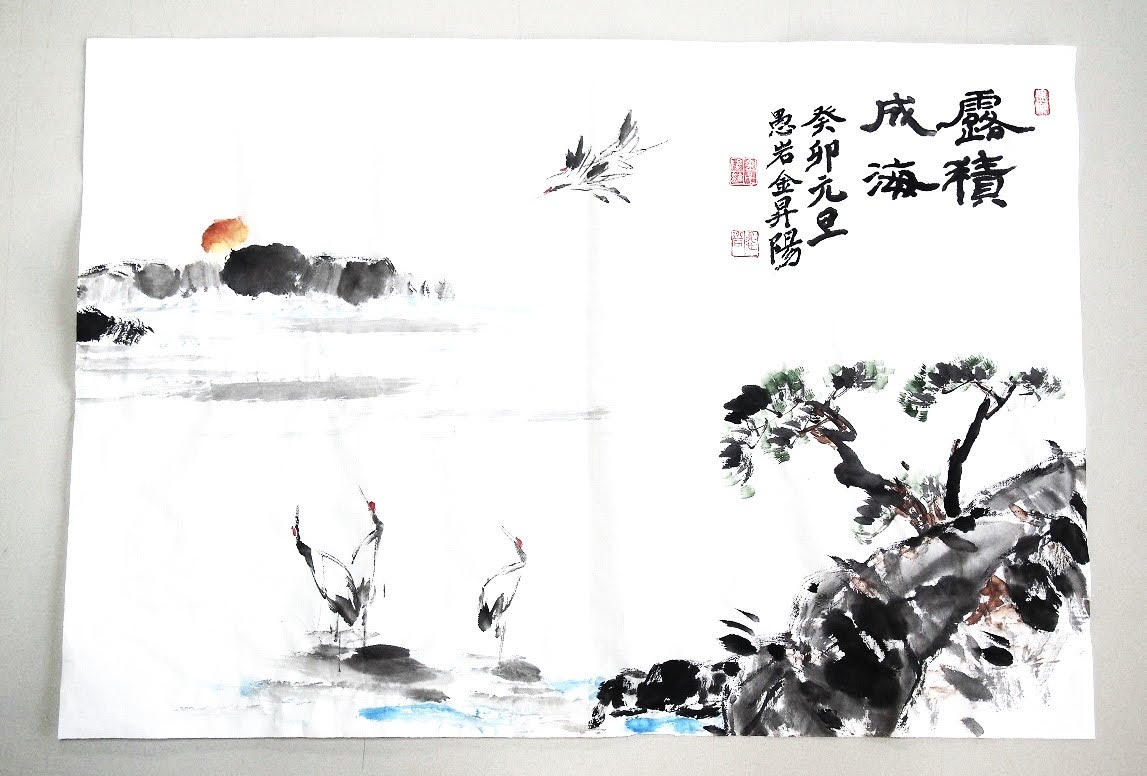 露積
成海
癸卯元旦
愚岩金昇陽